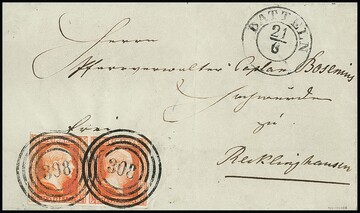 DATTELN
21/6
Herrn
Pfarrverwalter Caplan Bosenius
Hochwürden
frei
zu
Recklinghausen
398
398